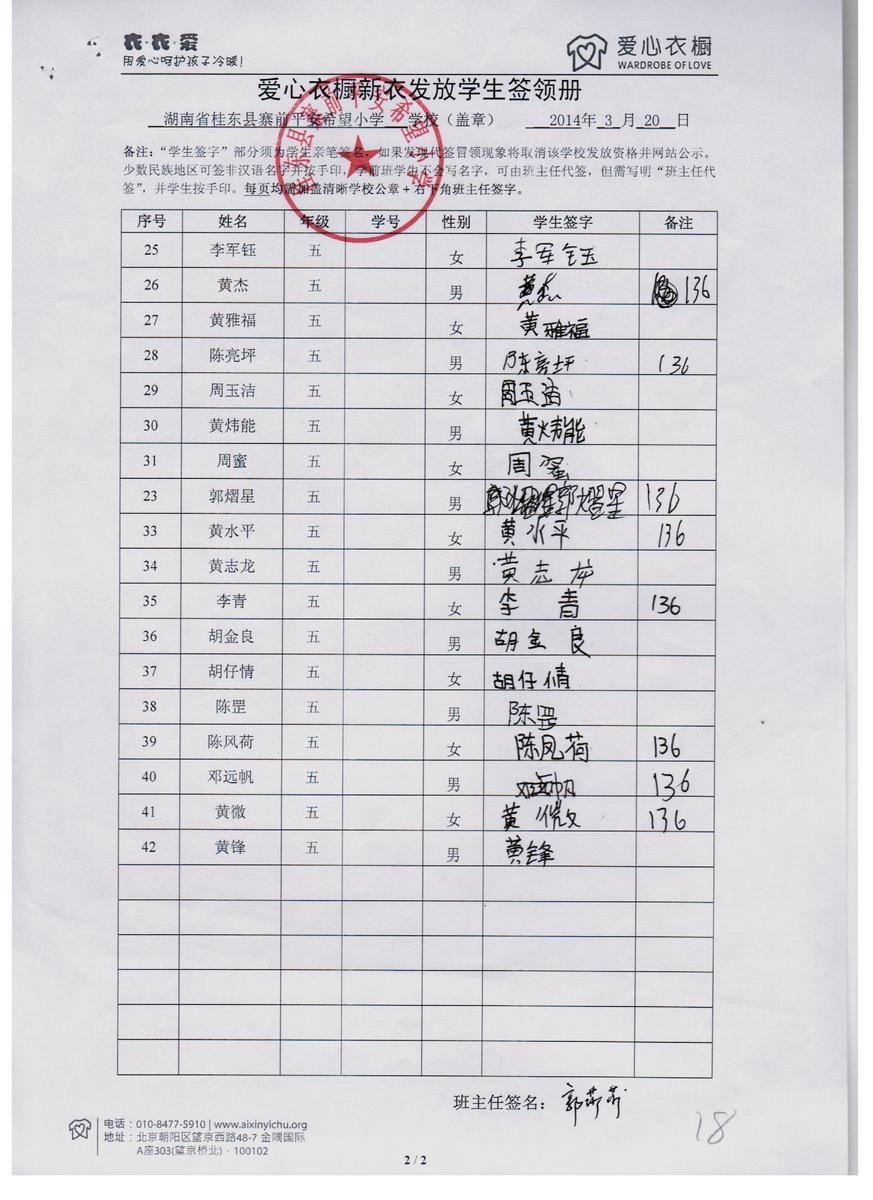 衣·衣·爱
用爱心呵护孩子冷暖!
爱心衣橱
WARDROBE OF LOVE
爱心衣橱新衣发放学生签领册
湖南省桂东县寨前平安希望小学 学校（盖章） 2014年 3 月 20 日
桂东县寨前平安希望小学
备注：“学生签字”部分须为学生亲笔签名，如果发现代签冒领现象将取消该学校发放资格并网站公示。
少数民族地区可签非汉语名字并按手印，学前班学生不会写名字，可由班主任代签，但需写明“班主任代
签”，并学生按手印。每页均需加盖清晰学校公章+右下角班主任签字。
序号 姓名 年级 学号 性别 学生签字 备注
25 李军钰 五 女 李军钰
26 黄杰 五 男 黄杰 136
27 黄雅福 五 女 黄雅福
28 陈亮坪 五 男 陈亮坪 136
29 周玉洁 五 女 周玉洁
30 黄炜能 五 男 黄炜能
31 周蜜 五 女 周蜜
23 郭熠星 五 男 郭熠星 136
33 黄水平 五 女 黄水平 136
34 黄志龙 五 男 黄志龙
35 李青 五 女 李青 136
36 胡金良 五 男 胡金良
37 胡仔情 五 女 胡仔情
38 陈罡 五 男 陈罡
39 陈风荷 五 女 陈凤荷 136
40 邓远帆 五 男 邓远帆 136
41 黄微 五 女 黄微 136
42 黄锋 五 男 黄锋
班主任签名：郭
18
电话：010-8477-5910 | www.aixinyichu.org
地址：北京朝阳区望京西路48-7 金隅国际
A座303(望京桥北)·100102
2 / 2